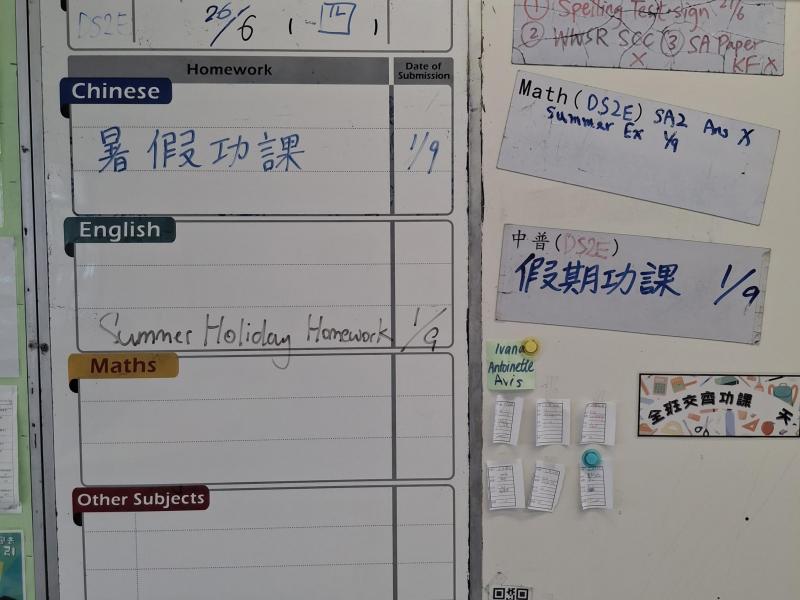 DS2E 26/6 ( 五 )
Homework Date of Submission
Chinese
暑假功課 1/9
English
Summer Holiday Homework 1/9
Maths
Other Subjects
① Spelling Test sign 21/6
② WWSR SCC ③ SA Paper
X KF X
Math(DS2E) SA2 Ans X
Summer Ex 1/9
中普(DS2E)
假期功課 1/9
Ivana
Antoinette
Avis
全班交齊功課 天